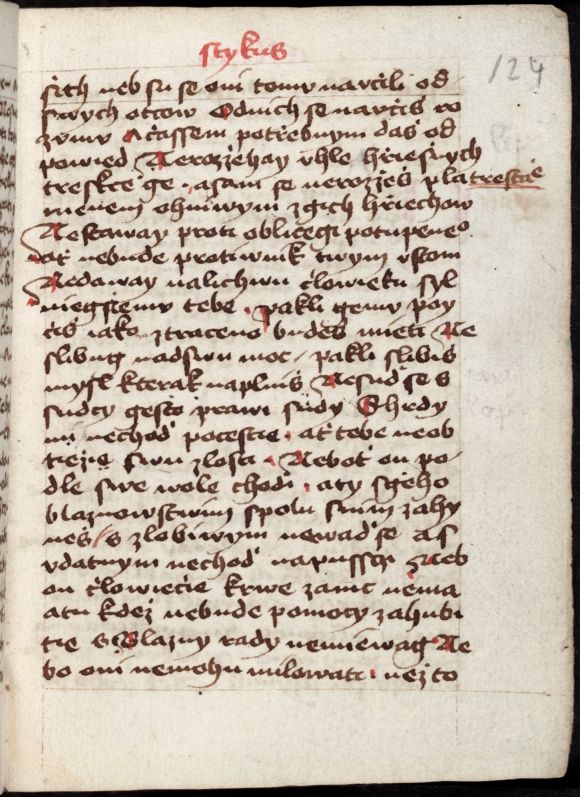 stykus
124
sich neb su se oni tomu naucili od
swych otcow Odnich se nauciš ro
zumu Acžassem potřebnym daš od
powied Nerozžehay uhle hřiesnych
treskce ge asam se nerozžeš pla trescie
menem ohniwym zgich hřiechow
Nestaway proti obličegi potupneo
ať nebude protiwnik twym ustom
Nedaway nalichwu člowieku syl
niegšiemu tebe pakli gemu poy
čiš iako ztraceno budeš mieti Ne
slibug nadswu moc pakli slibiš
mysl kterak naplniš Nesuď se s
sudcy gesto prawi sudy Shrdy
mi nechoď pocestie ať tebe neob
tiežie swu zlosti Neboť on po
dle swe wole chodi aty sgeho
blaznowstwim spolu snim zahy
neš s zlobiwym newaď se a s
udatnym nechoď napussči Neb
on člowiecie krwe zanic nema
atu kdež nebude pomocy zahubi
tie s Blazny rady nemiewag Ne
bo oni nemohu milowati než to